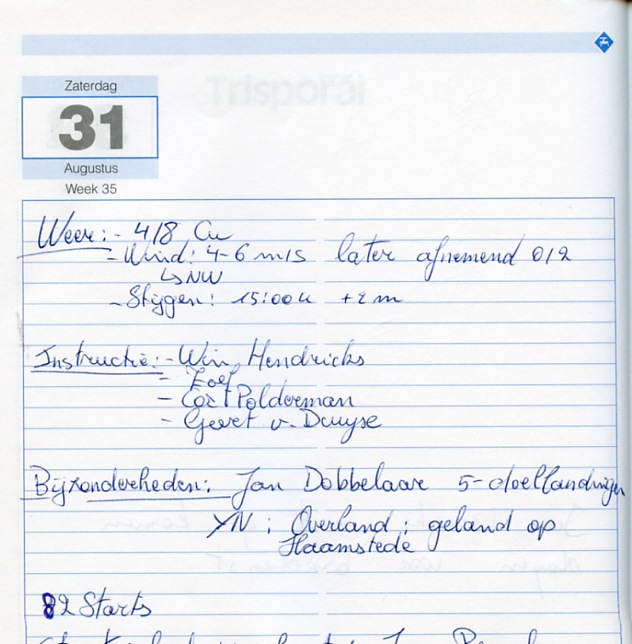 Zaterdag
31
Augustus
Week 35
Weer: - 4/8 Cu
- Wind: 4-6 m/s later afnemend 0/2
↳ NW
- Stijgen: 15:00 u +2 m
Instructie: - Wim Hendricks
-
- Cor Polderman
- Geert v. Duyse
Bijzonderheden: Jan Dobbelaar 5-doellandingen
YN: Overland: geland op
Haamstede
82 Starts